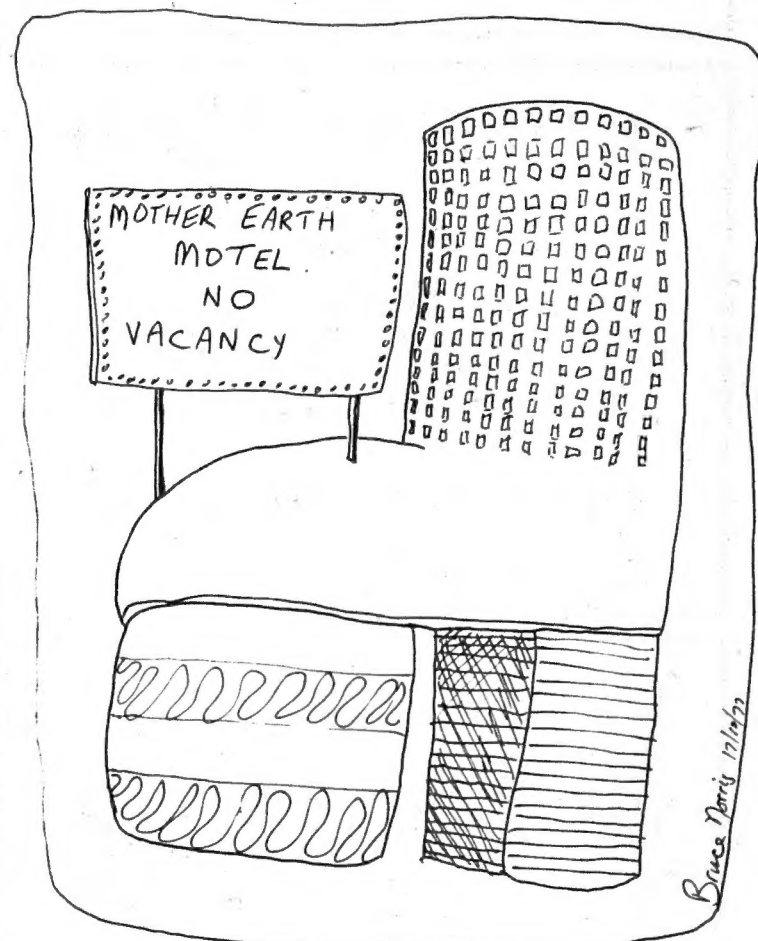 MOTHER EARTH
MOTEL
NO
VACANCY
Bruce Norris 17/10/77